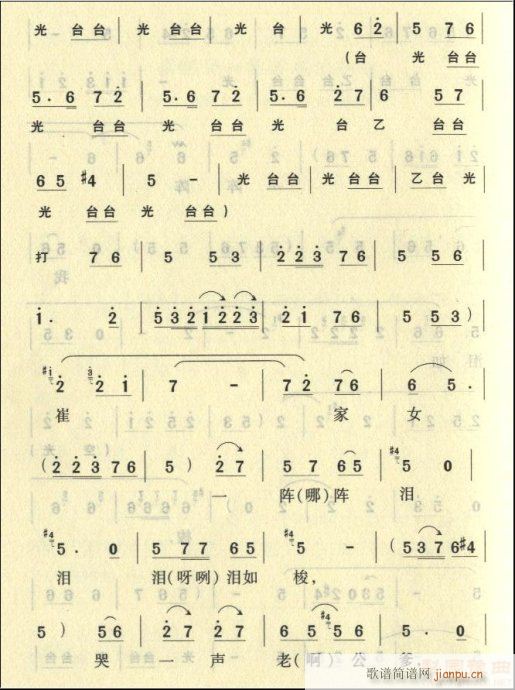 光 台台 | 光 台台 | 光 台 | 光 6 2 | 5 76 |
(台 光 台台
5. 6 7 2 | 5. 6 7 2 | 5. 6 2 7 6 | 6 5 7 |
光 台台 光 台台 光 台乙 台台
65 #4 | 5 - | 光 台台 | 光 台台 | 乙台 光 |
光 台台 光 台台)
打 76 | 5 53 | 2 2 3 7 6 | 5 56 |
1. 2 | 5 3 2 1 2 2 3 | 2 1 7 6 | 5 53) |
2 2 1 | 7 - | 7 2 7 6 | 6 5. |
崔 家 女
(2 2 3 7 6 | 5) 2 7 | 5 7 6 5 | 5 0 |
一 阵(哪)阵 泪
5. 0 | 5 7 7 6 5 | 5 - | (5 3 7 6 #4 |
泪 泪(呀咧)泪如 梭,
5) 5 6 | 2 7 2 7 | 6 5 5 0 | 5. 0 |
哭 一 声 老(啊)公 爹,
歌谱简谱网
jianpu.cn